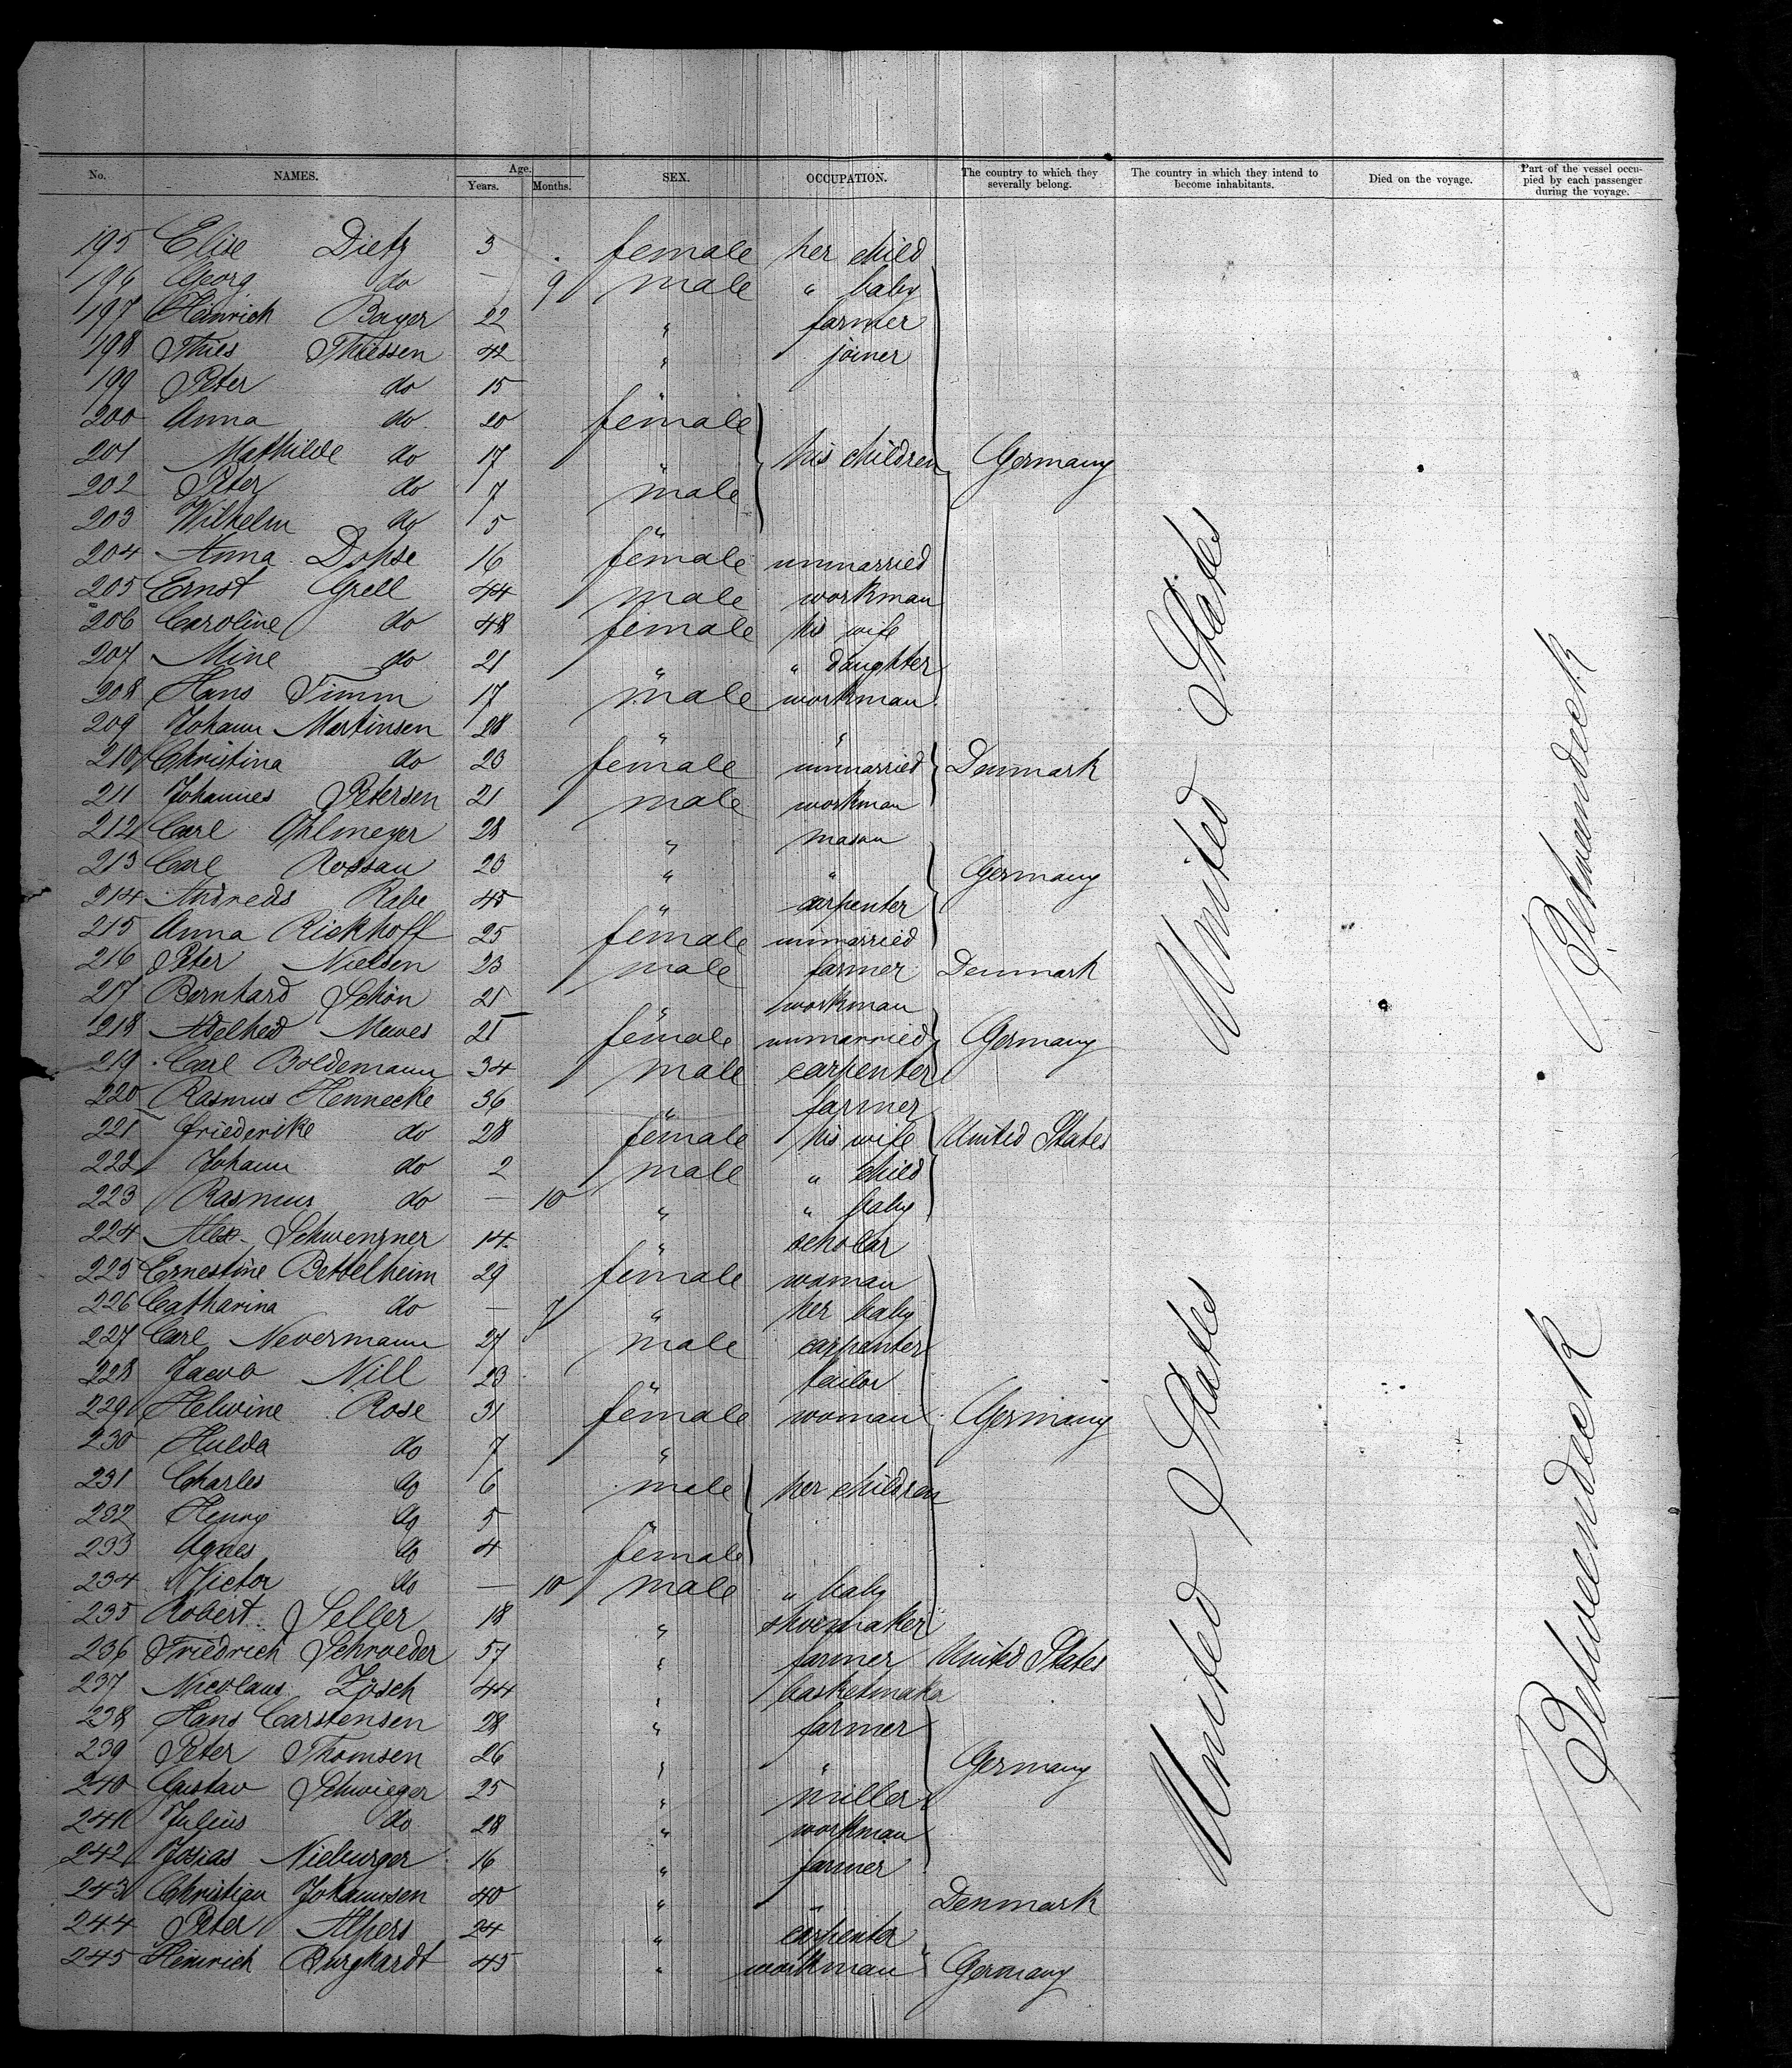 No. NAMES. Age. Years. Months. SEX. OCCUPATION. The country to which they severally belong. The country in which they intend to become inhabitants. Died on the voyage. Part of the vessel occupied by each passenger during the voyage.
195 Elise Dietz 3 female her child
196 Georg do — 9 male " baby
197 Heinrich Bayer 22 " farmer
198 Thies Thiessen 42 " joiner
199 Peter do 15 "
200 Anna do 20 female
201 Mathilde do 17 " his children Germany
202 Peter do 7 male
203 Wilhelm do 5 "
204 Anna Dohse 16 female unmarried
205 Ernst Grell 44 male workman
206 Caroline do 48 female his wife
207 Mine do 21 " " daughter
208 Hans Timm 17 male workman
209 Johann Martinsen 28 " "
210 Christina do 23 female unmarried Denmark
211 Johannes Petersen 21 male workman
212 Carl Ohlmeyer 28 " mason
213 Carl Rossau 23 " " Germany
214 Andreas Rabe 45 " carpenter
215 Anna Rickhoff 25 female unmarried
216 Peter Nielsen 23 male farmer Denmark
217 Bernhard Schön 25 " workman
218 Adelhed Mewes 25 female unmarried Germany
219 Carl Boldemann 34 male carpenter
220 Rasmus Hennecke 36 " farmer
221 Friederike do 28 female his wife United States
222 Johann do 2 male " child
223 Rasmus do — 10 " " baby
224 Alex. Schwenzner 14 " scholar
225 Ernestine Bettelheim 29 female woman
226 Catharina do — 7 " her baby
227 Carl Nevermann 27 male carpenter
228 Jacob Nill 23 " tailor
229 Helwine Rose 31 female woman Germany
230 Hulda do 7 "
231 Charles do 6 male her children
232 Henry do 5 "
233 Agnes do 4 female
234 Victor do — 10 male " baby
235 Robert Seller 18 " shoemaker
236 Friedrich Schroeder 57 " farmer United States
237 Nicolaus Lösch 44 " basketmaker
238 Hans Carstensen 28 " farmer
239 Peter Thomsen 26 " " Germany
240 Gustav Schwieger 25 " miller
241 Julius do 28 " workman
242 Josias Nieburger 16 " farmer
243 Christian Johannsen 40 " " Denmark
244 Peter Alpers 24 " carpenter
245 Heinrich Burghardt 45 " workman Germany
United States
United States
Betweendeck
Betweendeck